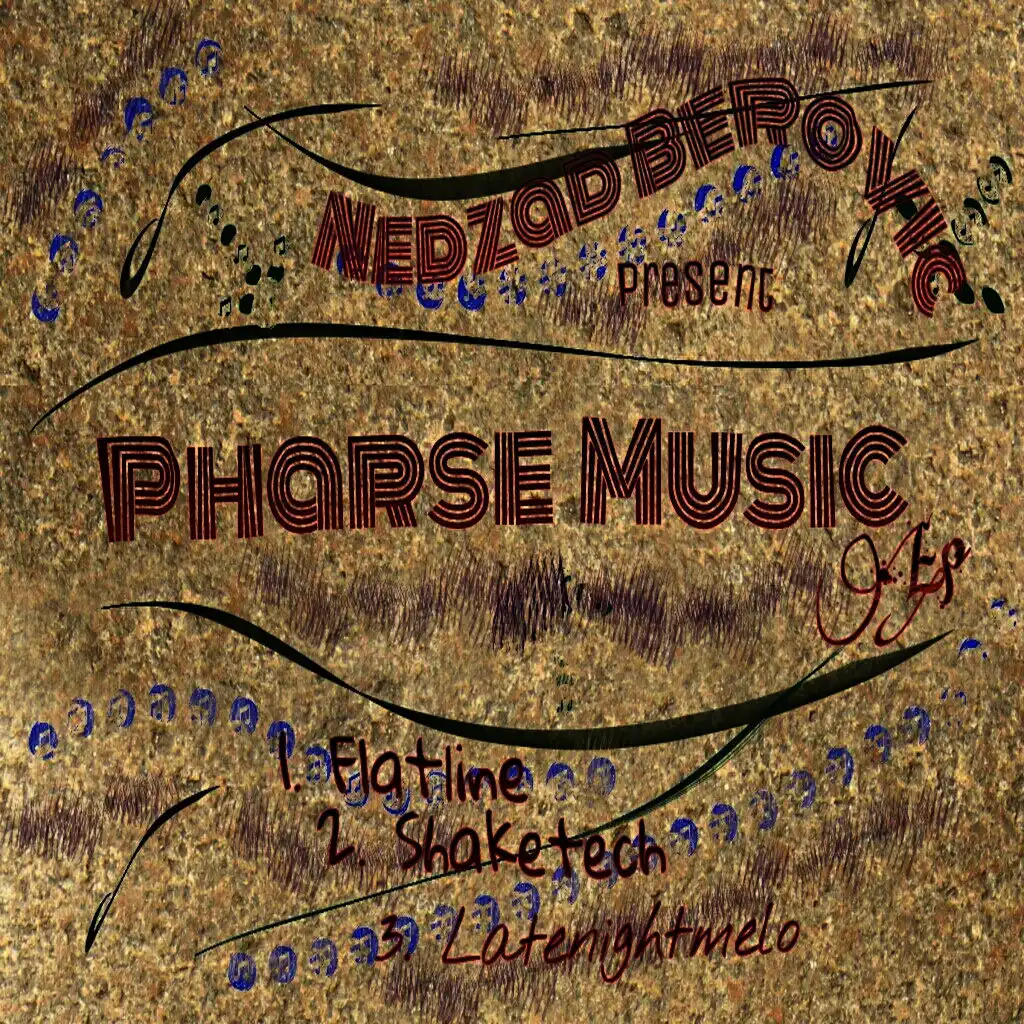 Nedzad Berovic
present
Pharse Music
EP
1. Flatline
2. Shaketech
3. Latenightmelo